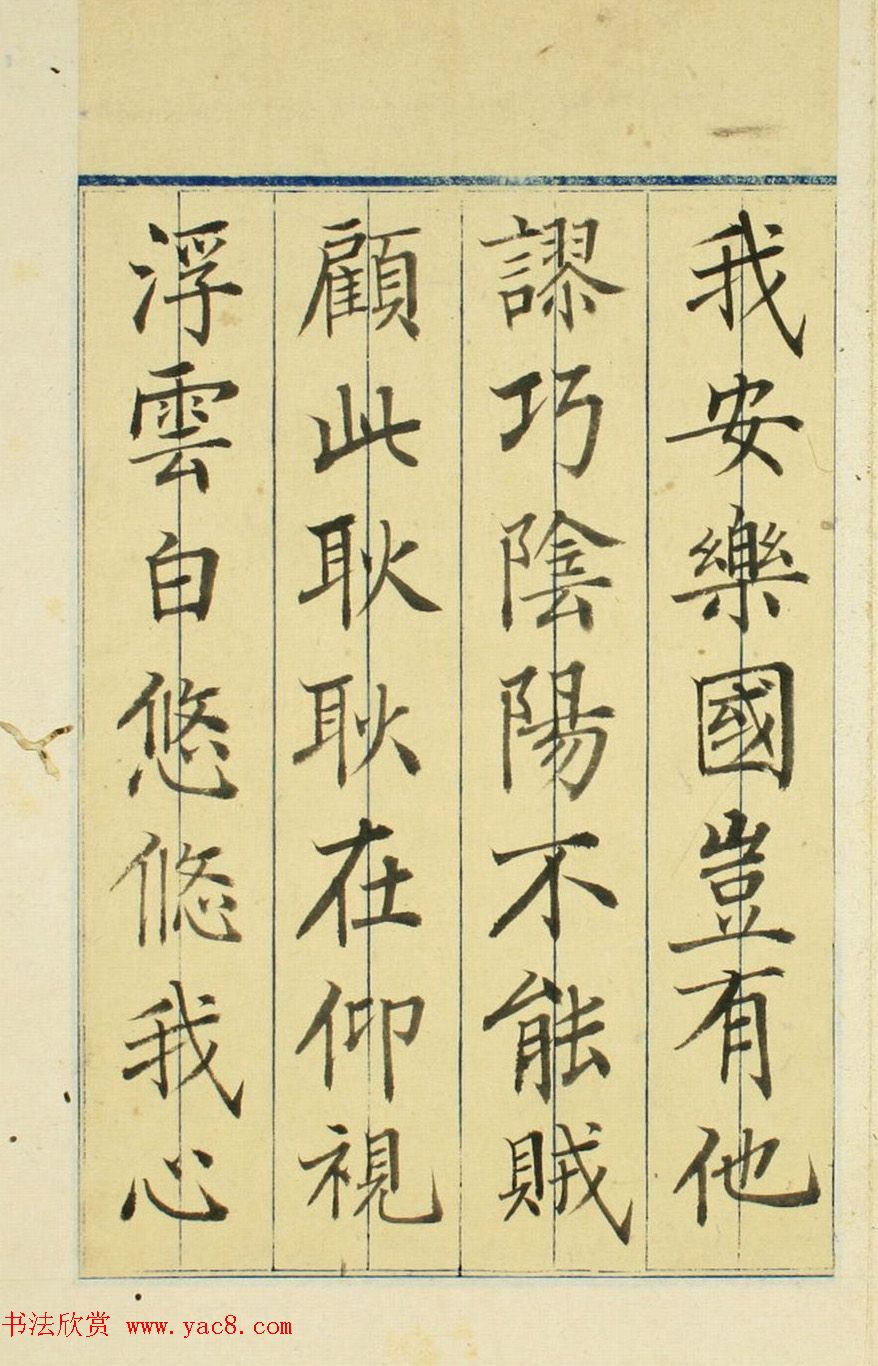 我安樂國豈有他
謬巧陰陽不能賊
顧此耿耿在仰視
浮雲白悠悠我心
书法欣赏 www.yac8.com